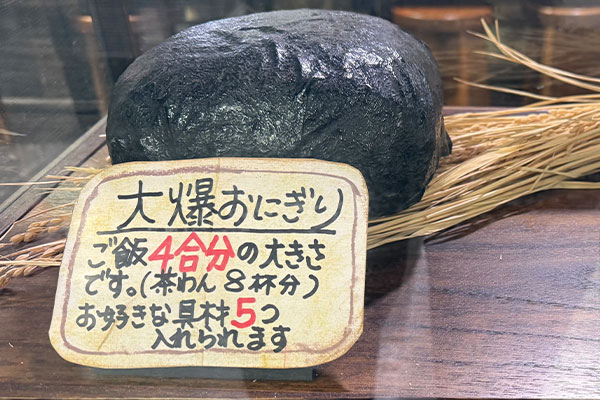 大爆おにぎり
ご飯4合分の大きさ
です。(茶わん8杯分)
お好きな具材5つ
入れられます